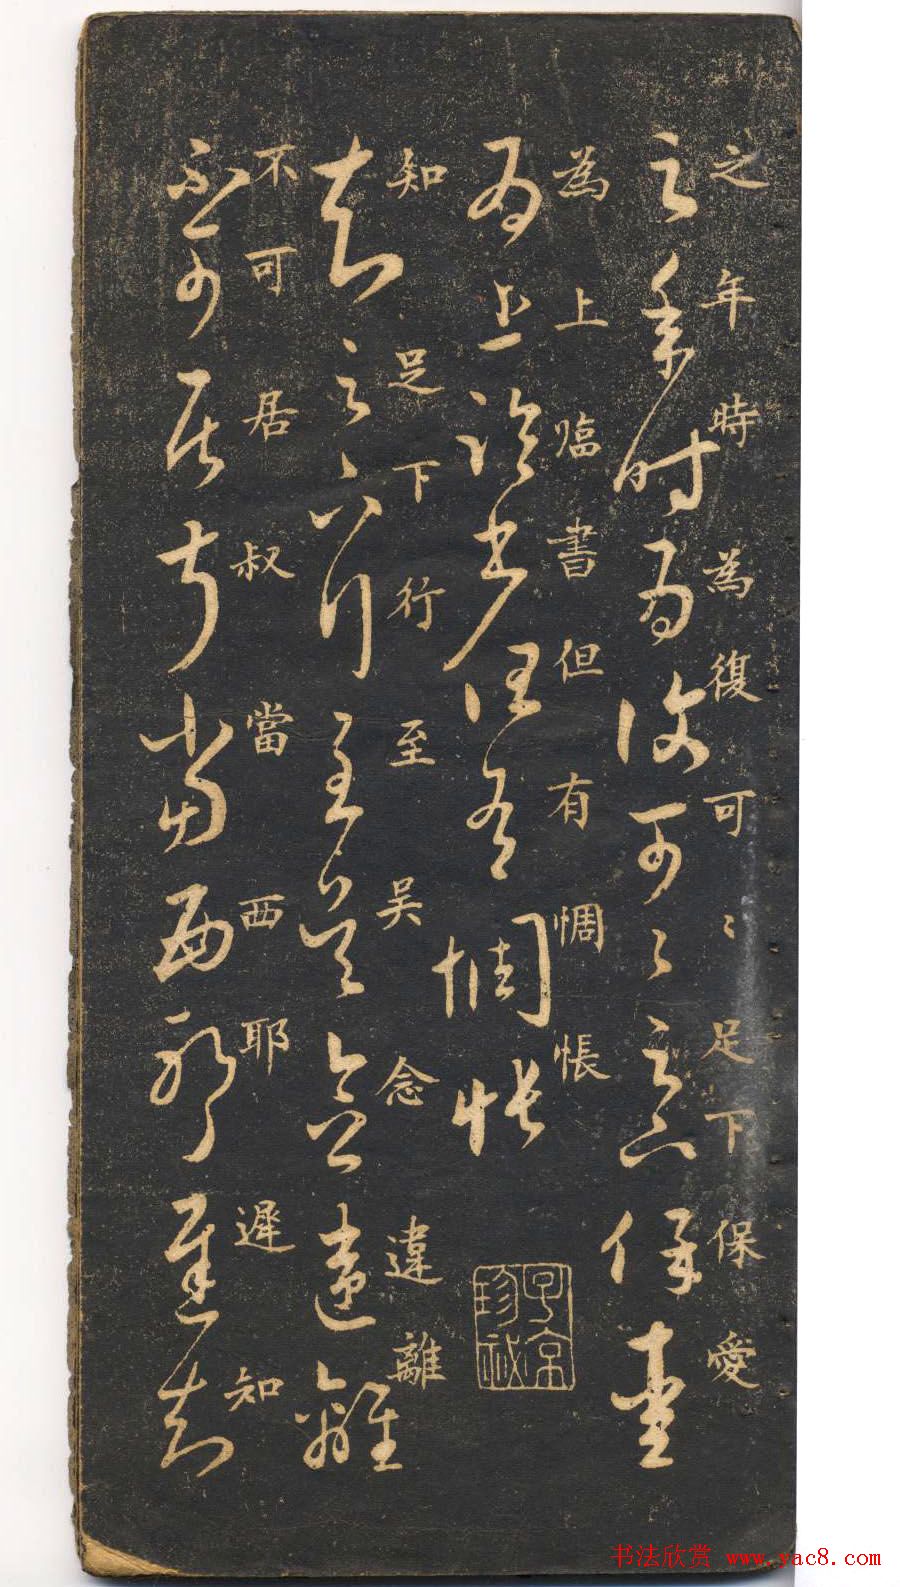 之年時為復可〻足下保愛
為上臨書但有惆悵
知足下行至吴念違離
不可居叔當西耶遲知
子京珍祕
书法欣赏 www.yac8.com